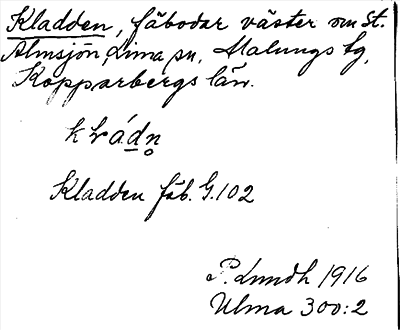 Kladden, fäbodar väster om St.
Almsjön, Lima sn, Malungs tg,
Kopparbergs län.
Kladden fäb. G.102
P. Lundh 1916
Ulma 300:2